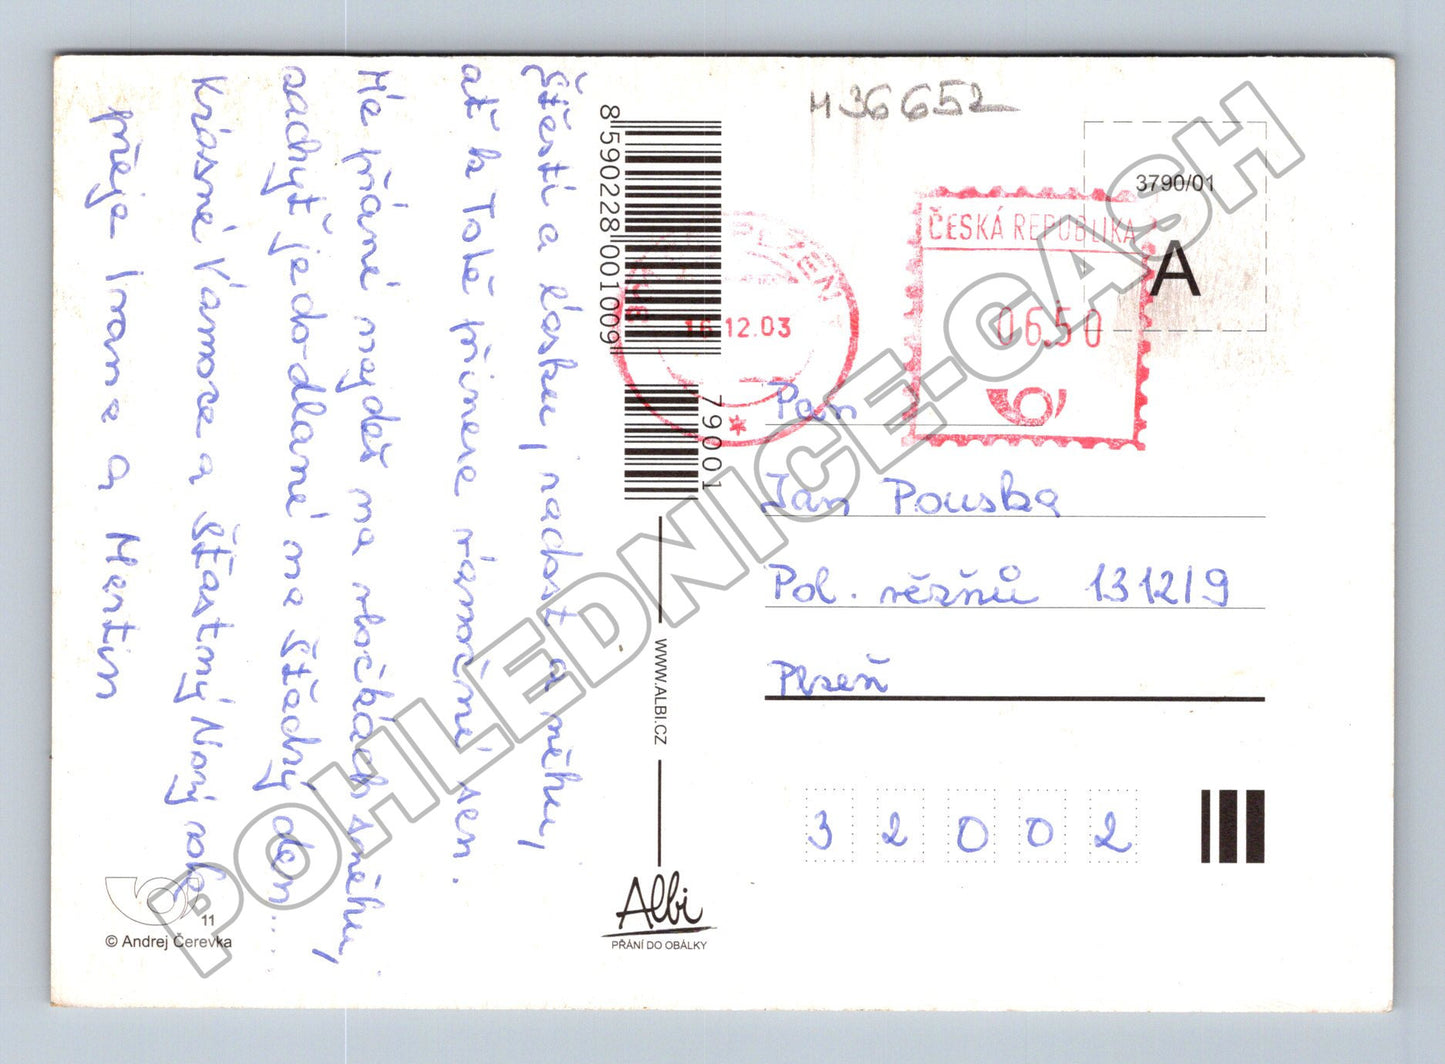 Štěstí a lásku, radost a něhu,
ať k Tobě přinese vánoční sen.
Mé přání najdeš na vločkách sněhu,
zachyť je do dlaně na Štědrý den...
Krásné Vánoce a šťastný Nový rok
přeje Ivana a Martin
M36652
3790/01
A
ČESKÁ REPUBLIKA
0650
PLZEŇ
16 12.03
8 590228 001009
79001
WWW.ALBI.CZ
Pan
Jan Pouska
Pol. vězňů 1312/9
Plzeň
32002
11
© Andrej Čerevka
Albi
PŘÁNÍ DO OBÁLKY
POHLEDNICE-CASH